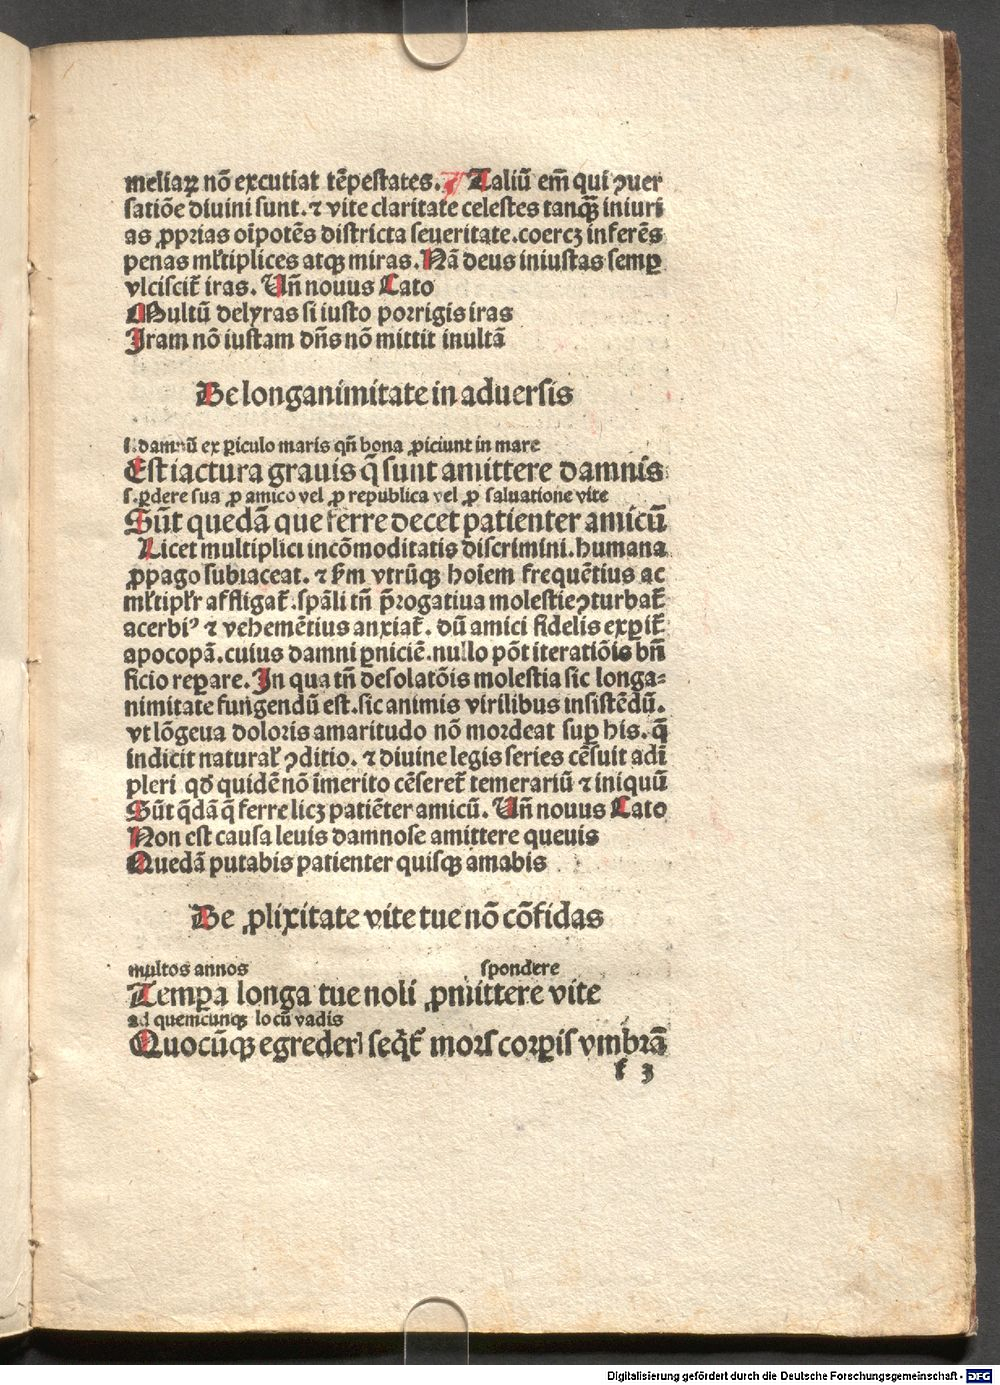 meliaꝝ nō excutiat tēpestates. Taliū em̄ qui ꝯuer
satiōe diuini sunt. ⁊ vite claritate celestes tanqᷓꝫ iniuri
as ꝓprias oīpotēs districta seueritate. coercꝫ inferēs
penas ml̓tiplices atqꝫ miras. Nā deus iniustas semꝑ
vlciscit̄ iras. Vn̄ nouus Cato
Multū delyras si iusto porrigis iras
Iram nō iustam dn̄s nō mittit inultā
De longanimitate in aduersis
s. damnū ex ꝑiculo maris qn̄ bona ꝓiciunt in mare
Est iactura grauis q̄ sunt amittere damnis
s. ꝑdere sua ꝓ amico vel ꝓ republica vel ꝓ saluatione vite
Sūt quedā que ferre decet patienter amicū
Licet multiplici incōmoditatis discrimini. humana
ꝓpago subiaceat. ⁊ ẜm vtrūqꝫ hoīem frequētius ac
ml̓tipl̓r affligat̄. spāli tn̄ p̄rogatiua molestie ꝯturbat̄
acerbiꝰ ⁊ vehemētius anxiat̄. dū amici fidelis exꝑit̄
apocopā. cuius damni ꝑniciē. nullo pōt iteratiōis bn̄
ficio reꝑare. In qua tn̄ desolatōis molestia sic longa-
nimitate fungendū est. sic animis virilibus insistēdū.
vt lōgeua doloris amaritudo nō mordeat suꝑ his. q̄
indicit natural̓ ꝯditio. ⁊ diuine legis series cēsuit adī
pleri qd̄ quidē nō īmerito cēseret̄ temerariū ⁊ iniquū
Sūt q̄dā q̄ ferre licꝫ patiēter amicū. Vn̄ nouus Cato
Non est causa leuis damnose amittere queuis
Quedā putabis patienter quisqꝫ amabis
De ꝓlixitate vite tue nō cōfidas
multos annos spondere
Temꝑa longa tue noli ꝓmittere vite
ad quemcunqꝫ locū vadis
Quocūqꝫ egrederl seq̄t̄ mors corꝑis vmbrā
f 3
Digitalisierung gefördert durch die Deutsche Forschungsgemeinschaft - DFG